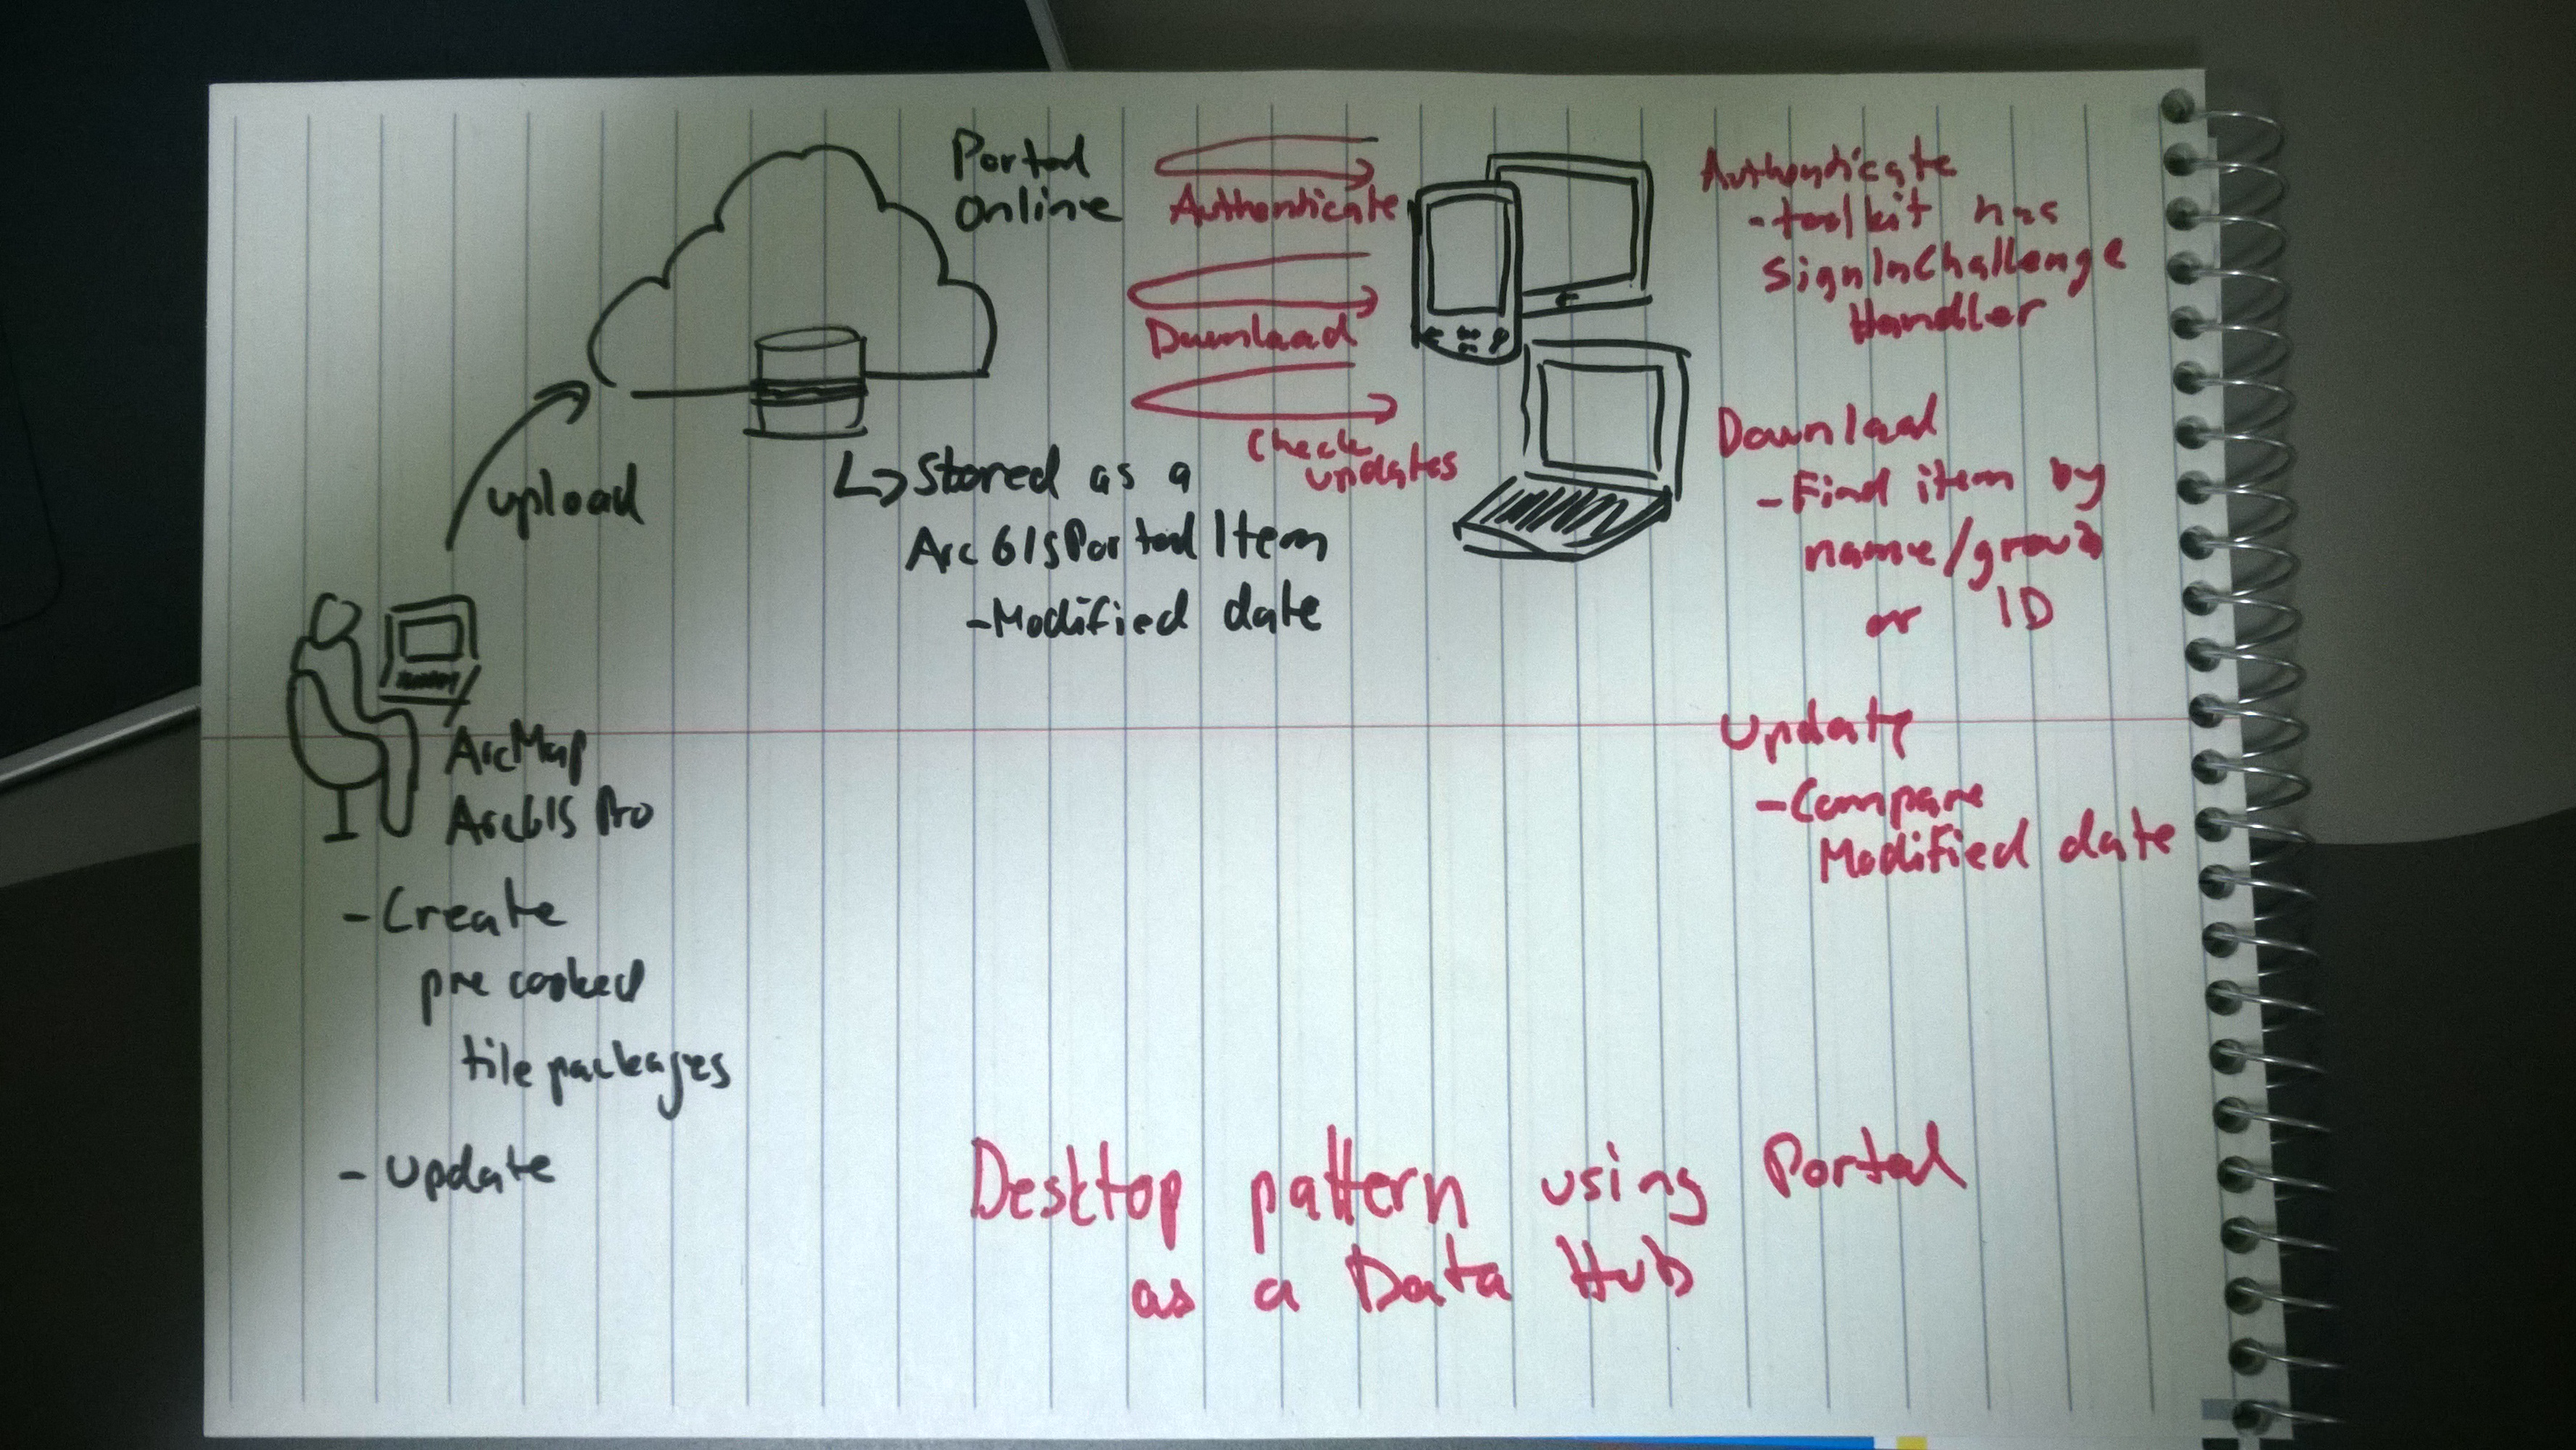 Portal
Online
Authenticate
Download
Check
updates
upload
Stored as a
ArcGISPortalItem
-Modified date
ArcMap
ArcGIS Pro
- Create
pre cooked
tile packages
- Update
Authenticate
- toolkit has
SignInChallenge
Handler
Download
- Find item by
name/group
or ID
Update
- Compare
Modified date
Desktop pattern using Portal
as a Data Hub